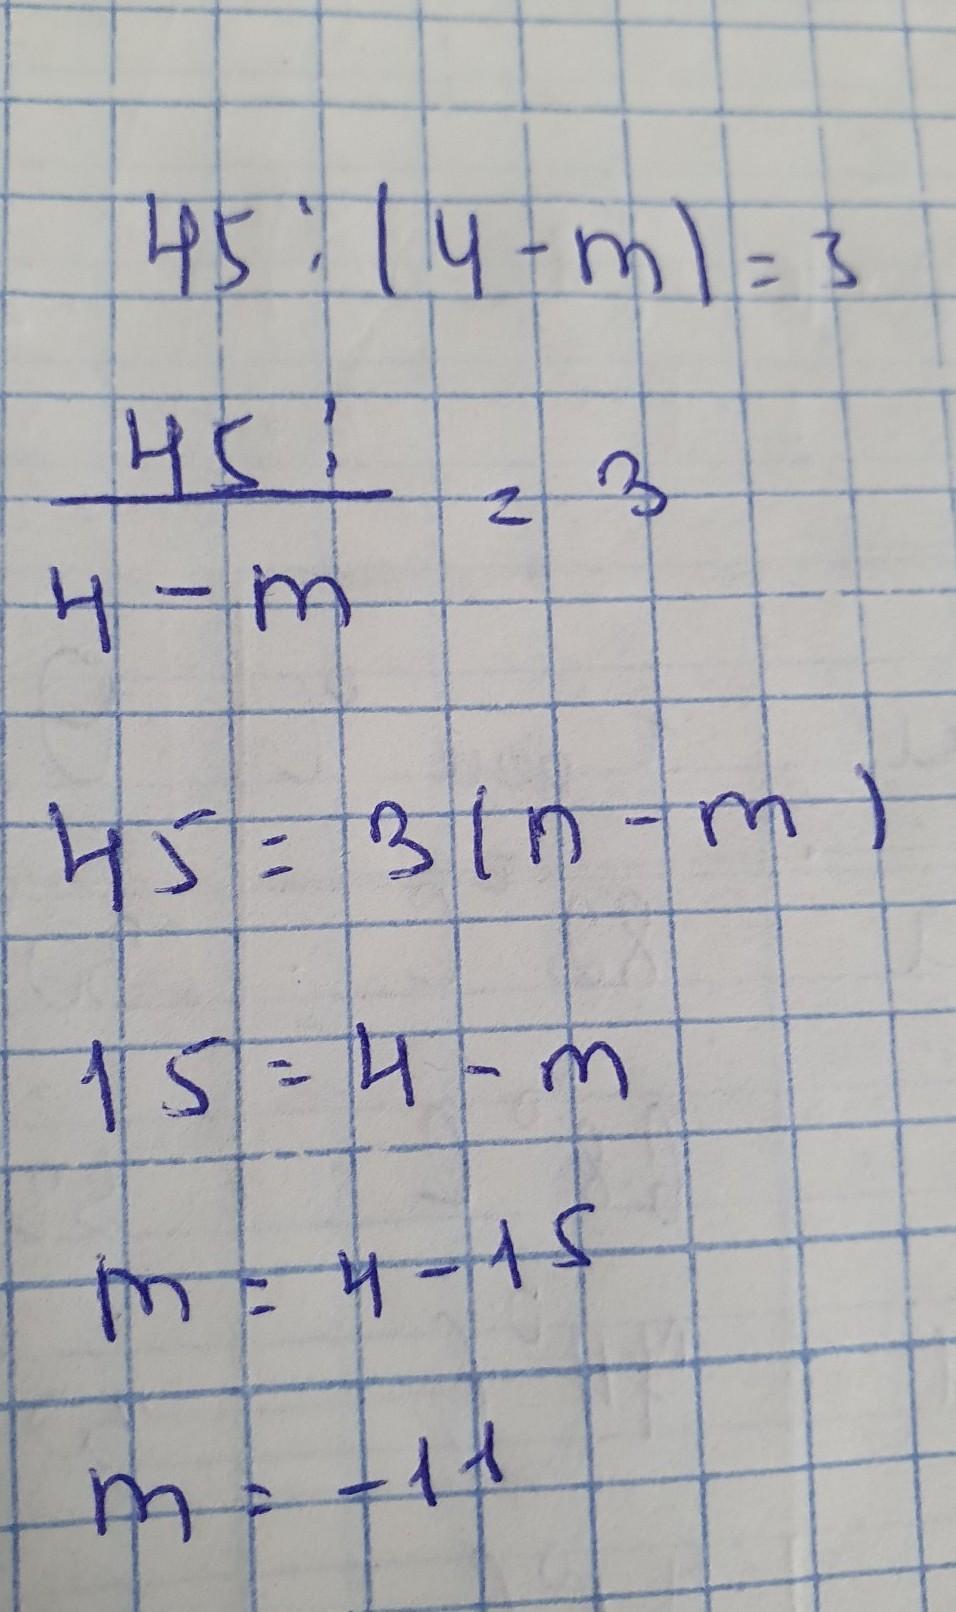 45:(4-m)=3
45:
4-m = 3
45=3(n-m)
15=4-m
m=4-15
m=-11